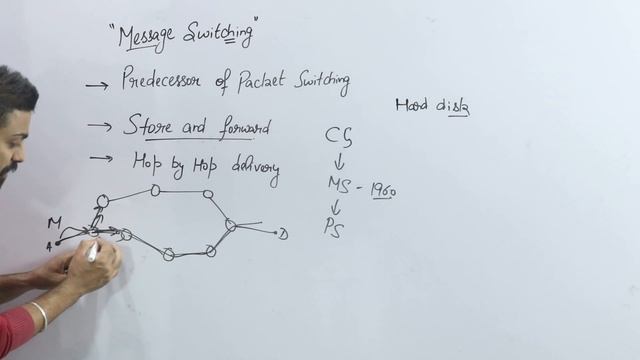 "Message Switching"
→ Predecessor of Packet Switching
Hard disk
→ Store and forward
CS
↓
→ Hop by Hop delivery
MS - 1960
↓
PS
M
A
D